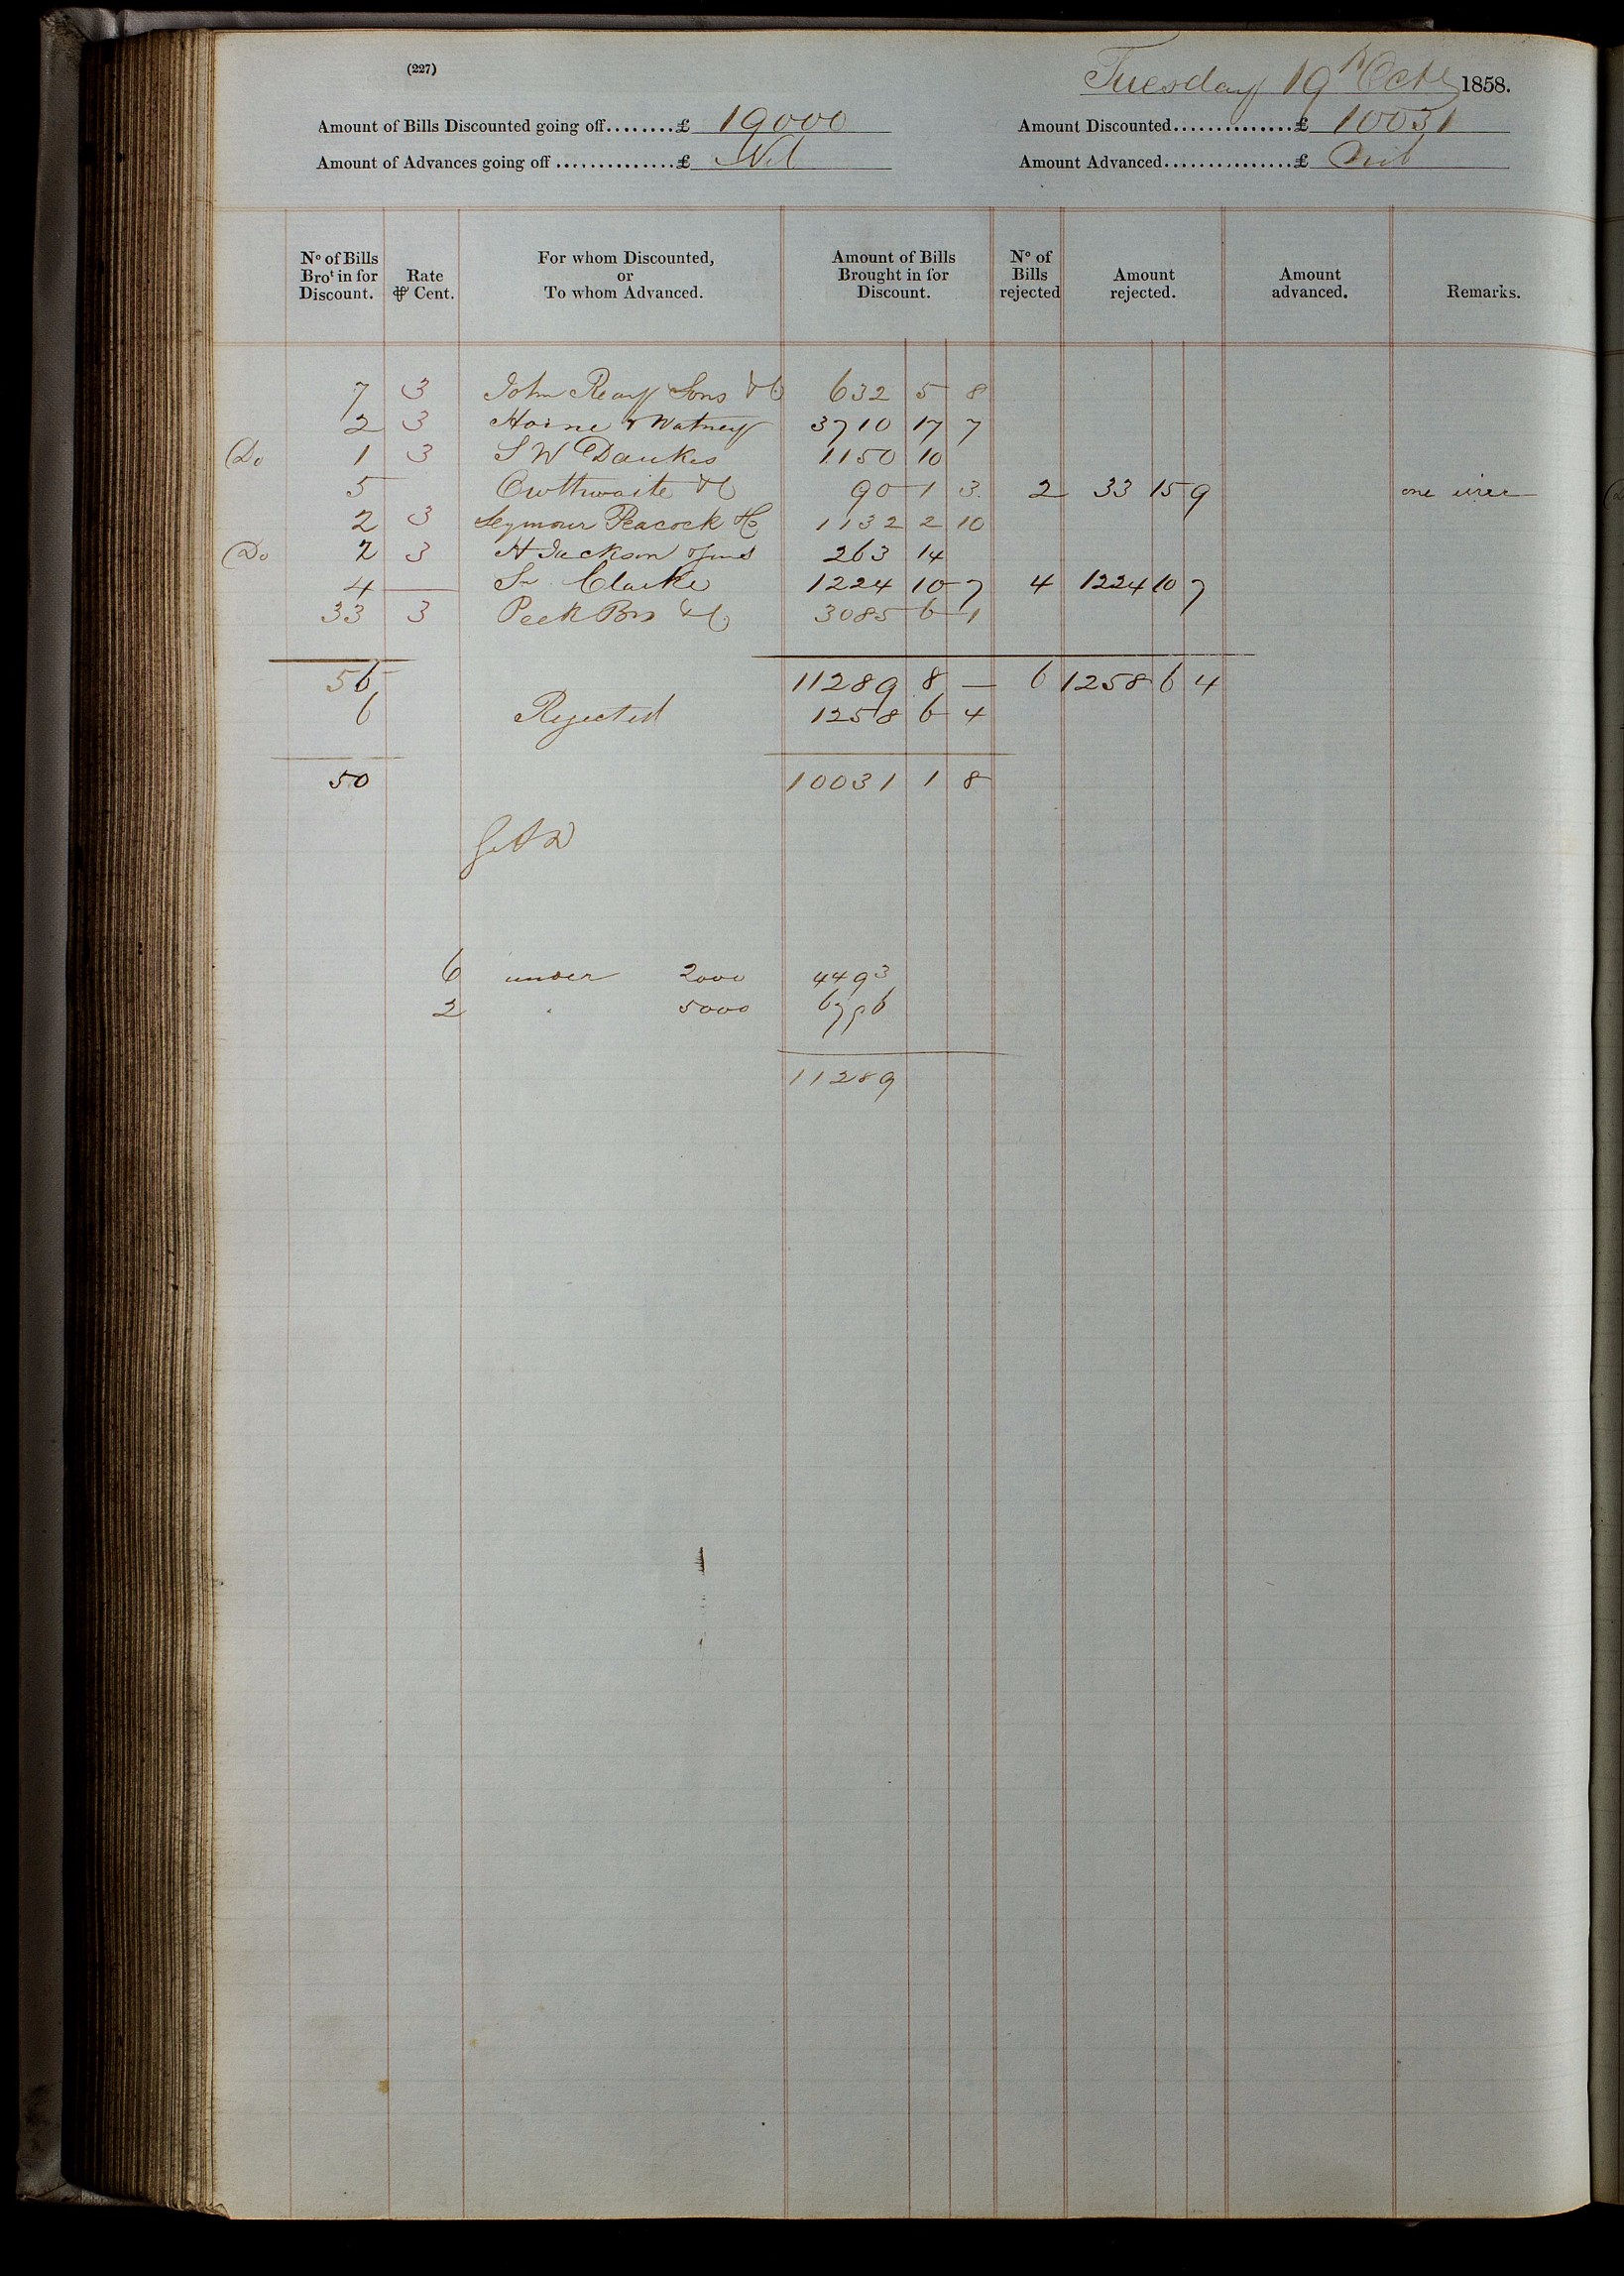 (227)
Tuesday 19th Octr 1858.
Amount of Bills Discounted going off........£ 19000 Amount Discounted..............£ 10031
Amount of Advances going off..............£ Nil Amount Advanced...............£ Nil
No of Bills Brot in for Discount. Rate ⅌ Cent. For whom Discounted, or To whom Advanced. Amount of Bills Brought in for Discount. No of Bills rejected Amount rejected. Amount advanced. Remarks.
7 3 John Reay Sons & Co 632 5 8
2 3 Horne & Watney 3710 17 7
Do 1 3 S W Daukes 1150 10
5 Outhwaite & Co 90 1 3 2 33 15 9 one
2 3 Seymour Peacock & Co 1132 2 10
Do 2 3 H Jackson 263 14
4 — Clarke 1224 10 7 4 1224 10 7
33 3 Peek Bros & Co 3085 6 1
56 11289 8 — 6 1258 6 4
6 Rejected 1258 6 4
50 10031 1 8
6 under 2000 4493
2 " 5000 6796
11289